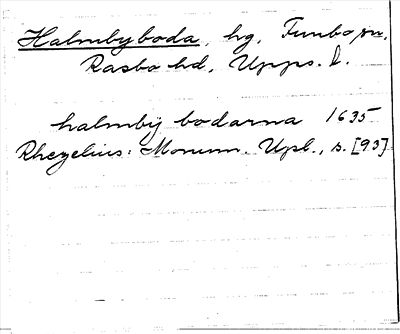 Halmbyboda, hg, Funbo sn,
Rasbo hd, Upps. l.
halmbij bodarna 1635
Rhezelius: Monum. Upl., s. [93]